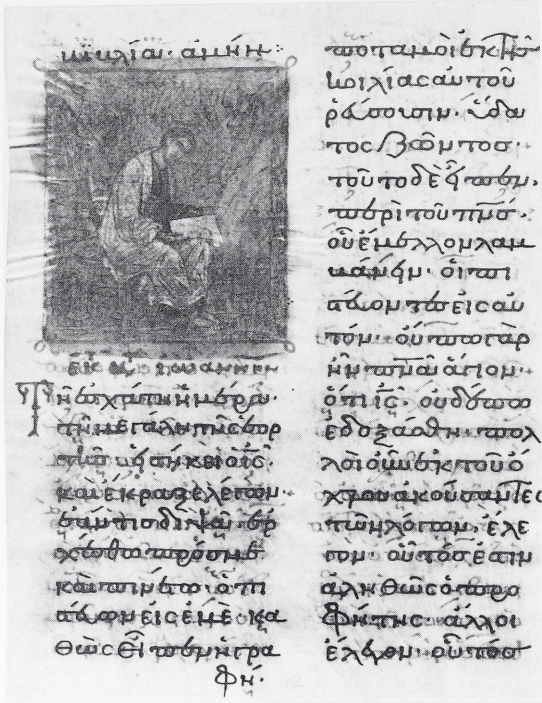 ἀμήν:
Ἰωάννην
Τῆ ἐσχάτη ἡμέρα·
τῆ μεγάλη τῆς ἑορ
τῆς εἱστήκει ὁ ις·
καὶ ἔκραξε λέγων·
ἐάν τις διψᾶ· ἐρ
χέσθω πρός με
καὶ πινέτω· ὁ πι
στεύων εἰς ἐμὲ κα
θὼς εἶπεν ἡ γρα
φή·
ποταμοὶ ἐκ τῆς
κοιλίας αὐτοῦ
ῥεύσουσιν· ὕδα
τος ζῶντος·
τοῦτο δὲ εἶπεν·
περὶ τοῦ πνς·
οὗ ἔμελλον λαμ
βάνειν· οἱ πι
στεύοντες εἰς αὐ
τόν· οὔπω γὰρ
ἦν πνα ἅγιον·
ὅτι ις· οὐδέπω
ἐδοξάσθη· πολ
λοὶ οὖν ἐκ τοῦ ὄ
χλου ἀκούσαντες
τῶν λόγων· ἔλε
γον· οὗτός ἐστιν
ἀληθῶς ὁ προ
φήτης· ἄλλοι
ἔλεγον· οὗτος